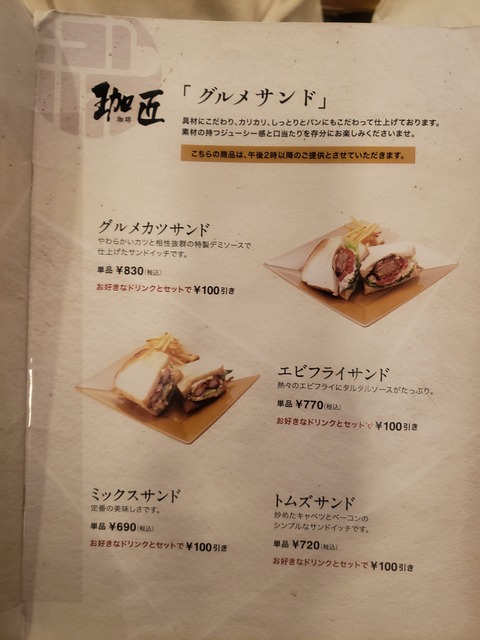 珈匠
珈琲
「グルメサンド」
具材にこだわり、カリカリ、しっとりとパンにもこだわって仕上げております。
素材の持つジューシー感と口当たりを存分にお楽しみくださいませ。
こちらの商品は、午後2時以降のご提供とさせていただきます。
グルメカツサンド
やわらかいカツと相性抜群の特製デミソースで
仕上げたサンドイッチです。
単品 ¥830(税込)
お好きなドリンクとセットで ¥100引き
エビフライサンド
熱々のエビフライにタルタルソースがたっぷり。
単品 ¥770(税込)
お好きなドリンクとセットで ¥100引き
ミックスサンド
定番の美味しさです。
単品 ¥690(税込)
お好きなドリンクとセットで ¥100引き
トムズサンド
炒めたキャベツとベーコンの
シンプルなサンドイッチです。
単品 ¥720(税込)
お好きなドリンクとセットで ¥100引き